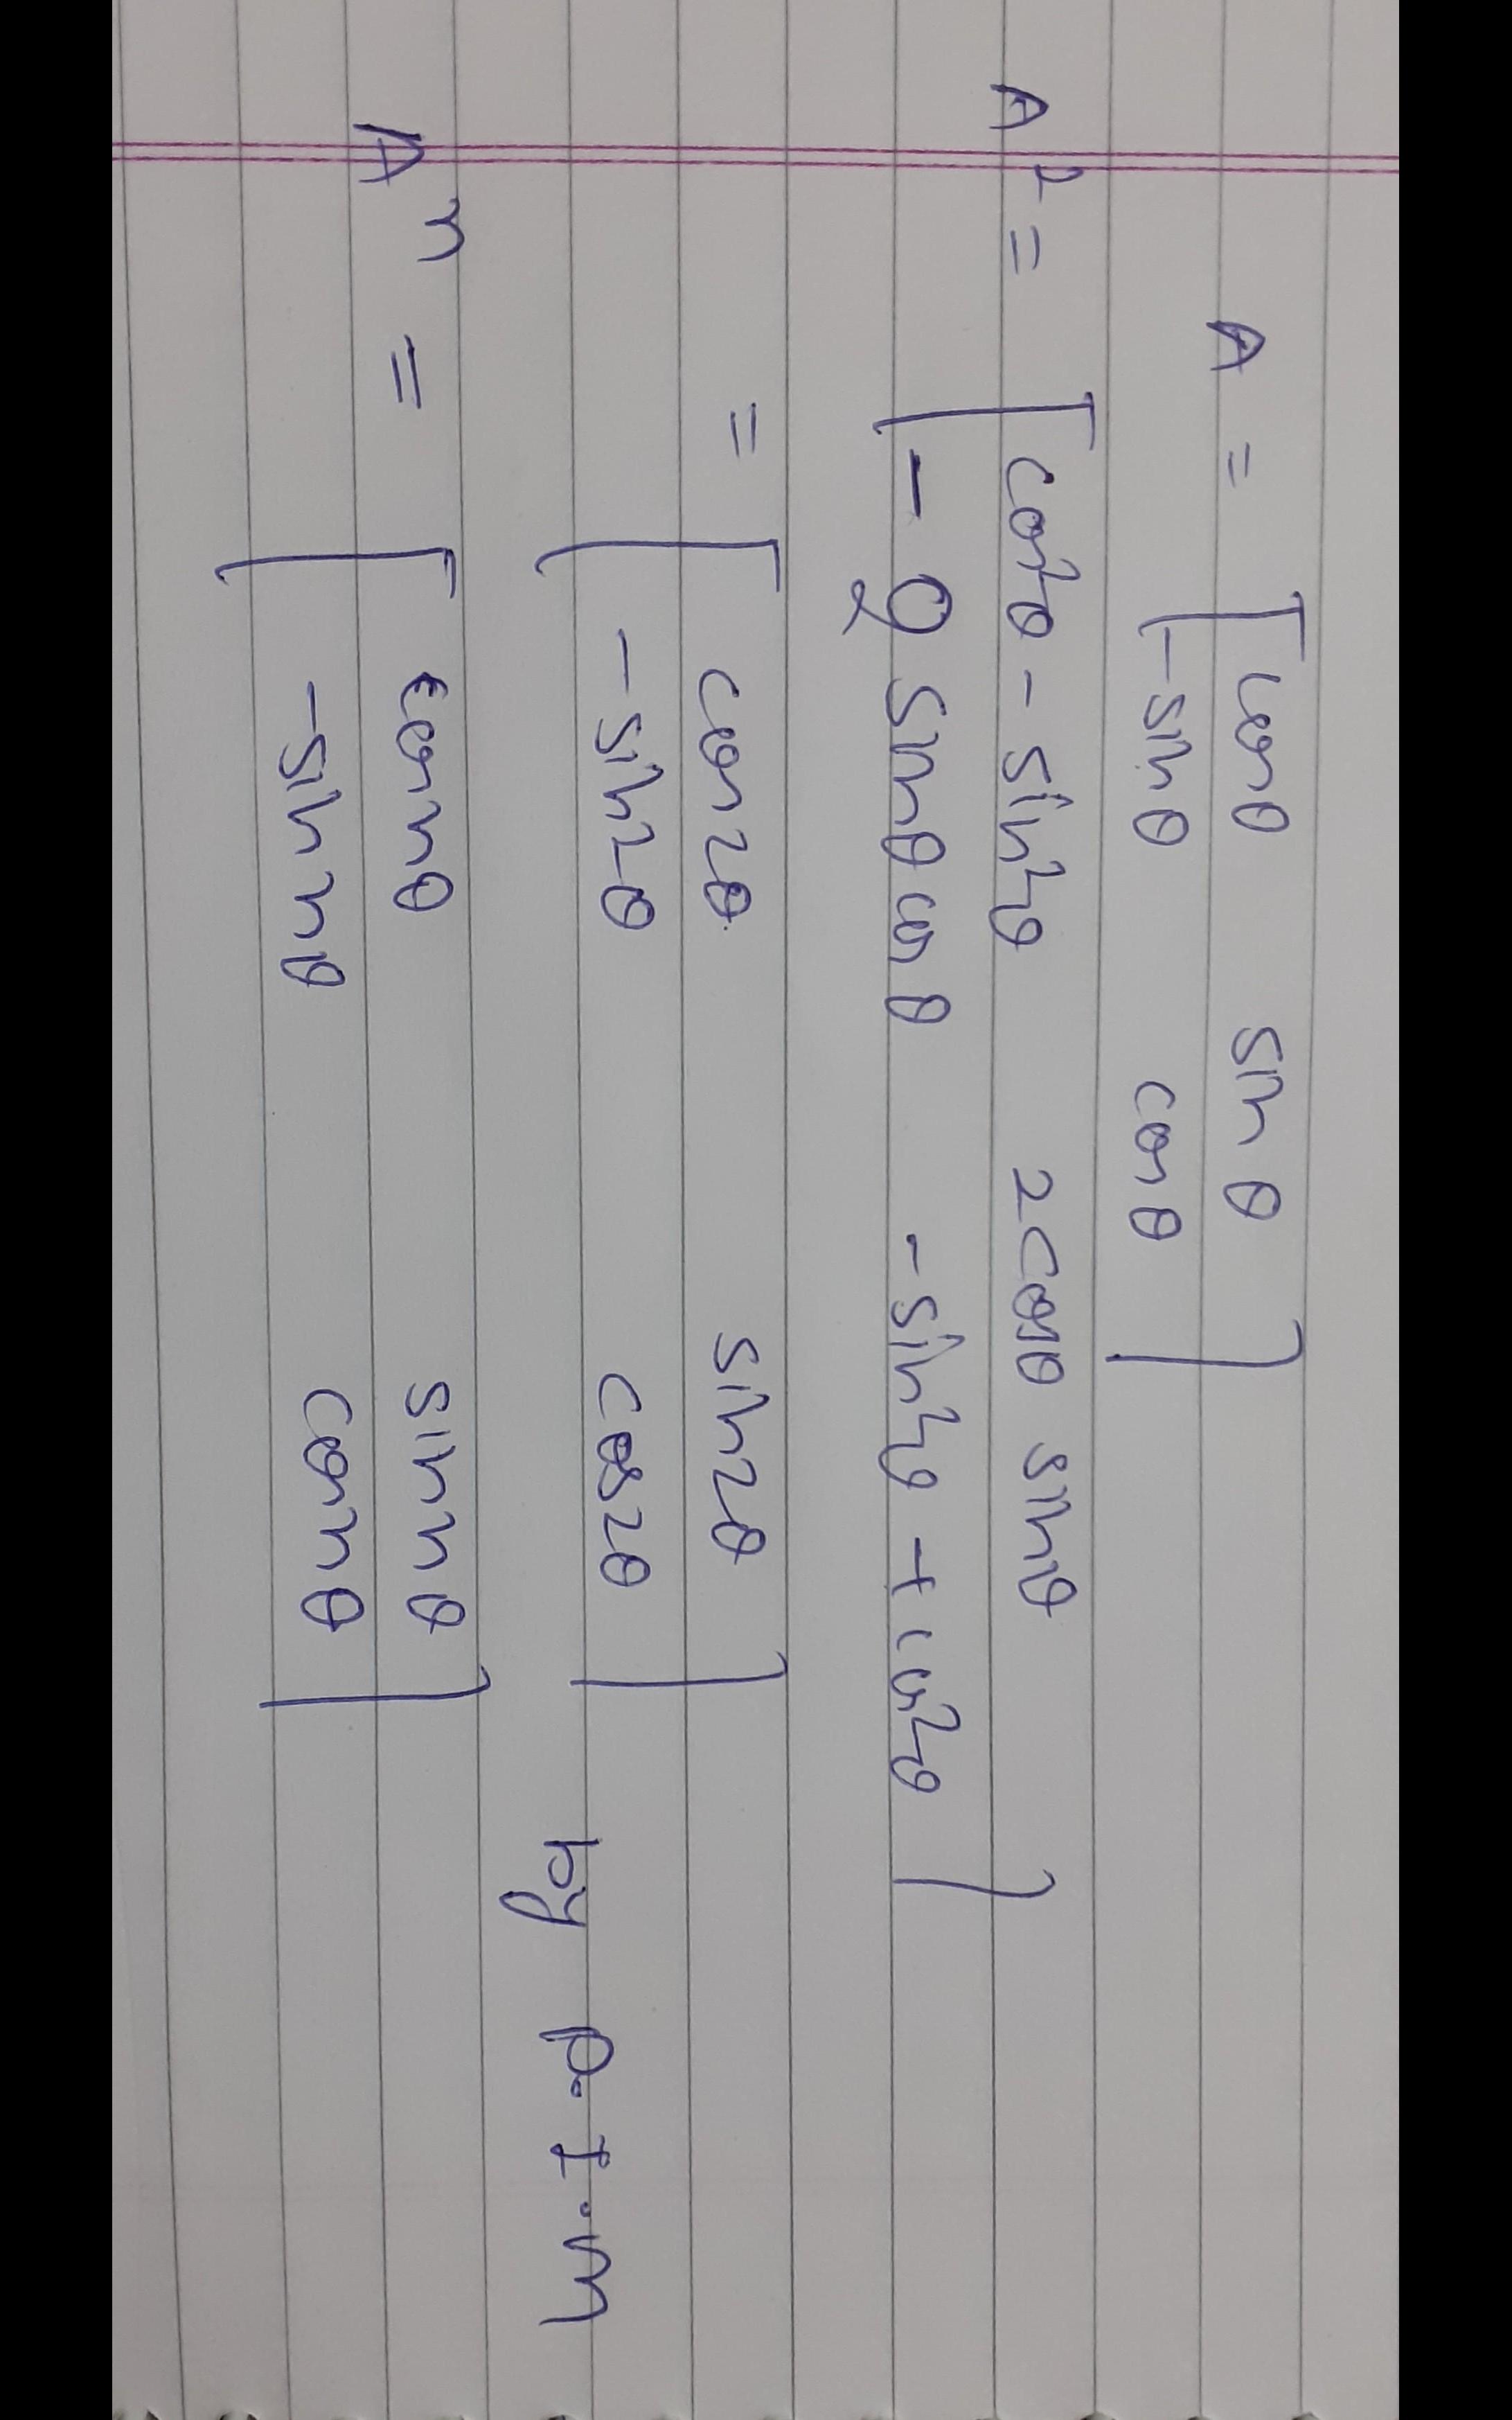 A = [ cosθ sinθ
-sinθ cosθ ]
A² = [ cos²θ - sin²θ 2cosθ sinθ
- 2 sinθ cosθ -sin²θ + cos²θ ]
= [ cos2θ sin2θ
-sin2θ cos2θ ]
by P.I.M
Aⁿ = [ cosnθ sinnθ
-sinnθ cosnθ ]